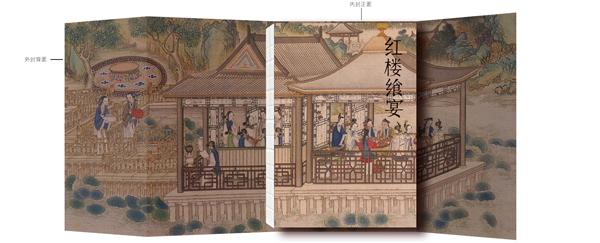 内封正面
外封背面
红楼飨宴